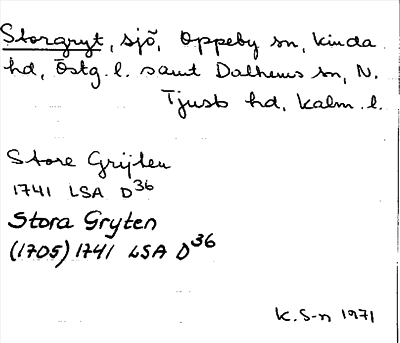 Storgryt, sjö, Oppeby sn, Kinda
hd, Östg. l. samt Dalhems sn, N.
Tjusts hd, Kalm. l.
Store Grÿten
1741 LSA D36
Stora Gryten
(1705) 1741 LSA D36
K. S-n 1971